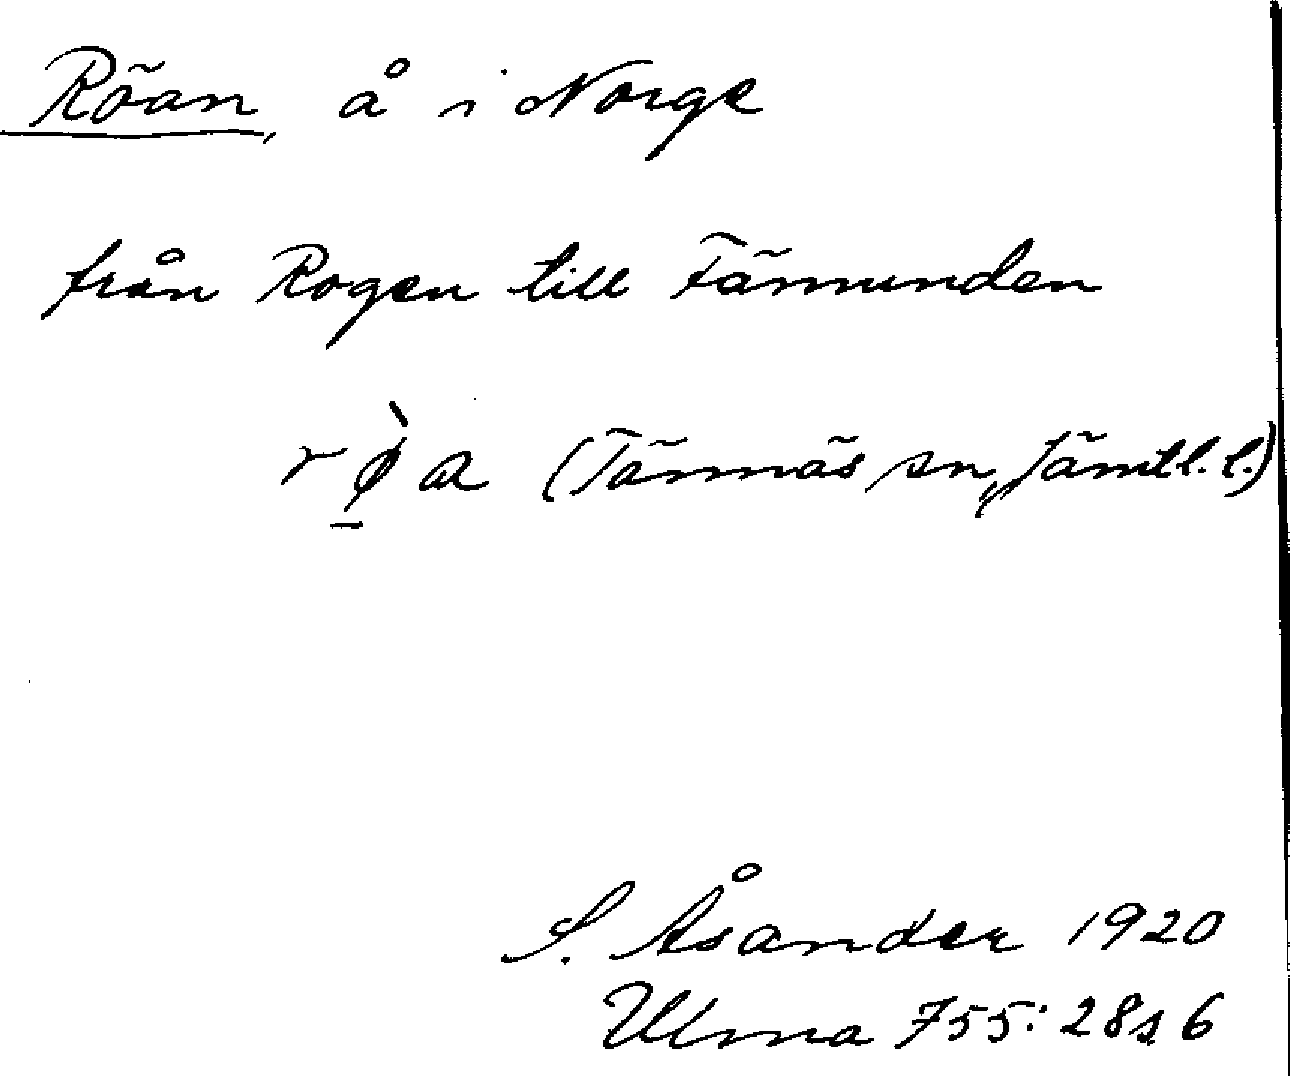 Röan, å i Norge
från Rogen till Fämunden
rø̱̀a (Tännäs sn, Jämtl. l.)
S. Åsander 1920
Ulma 755: 28 s. 6